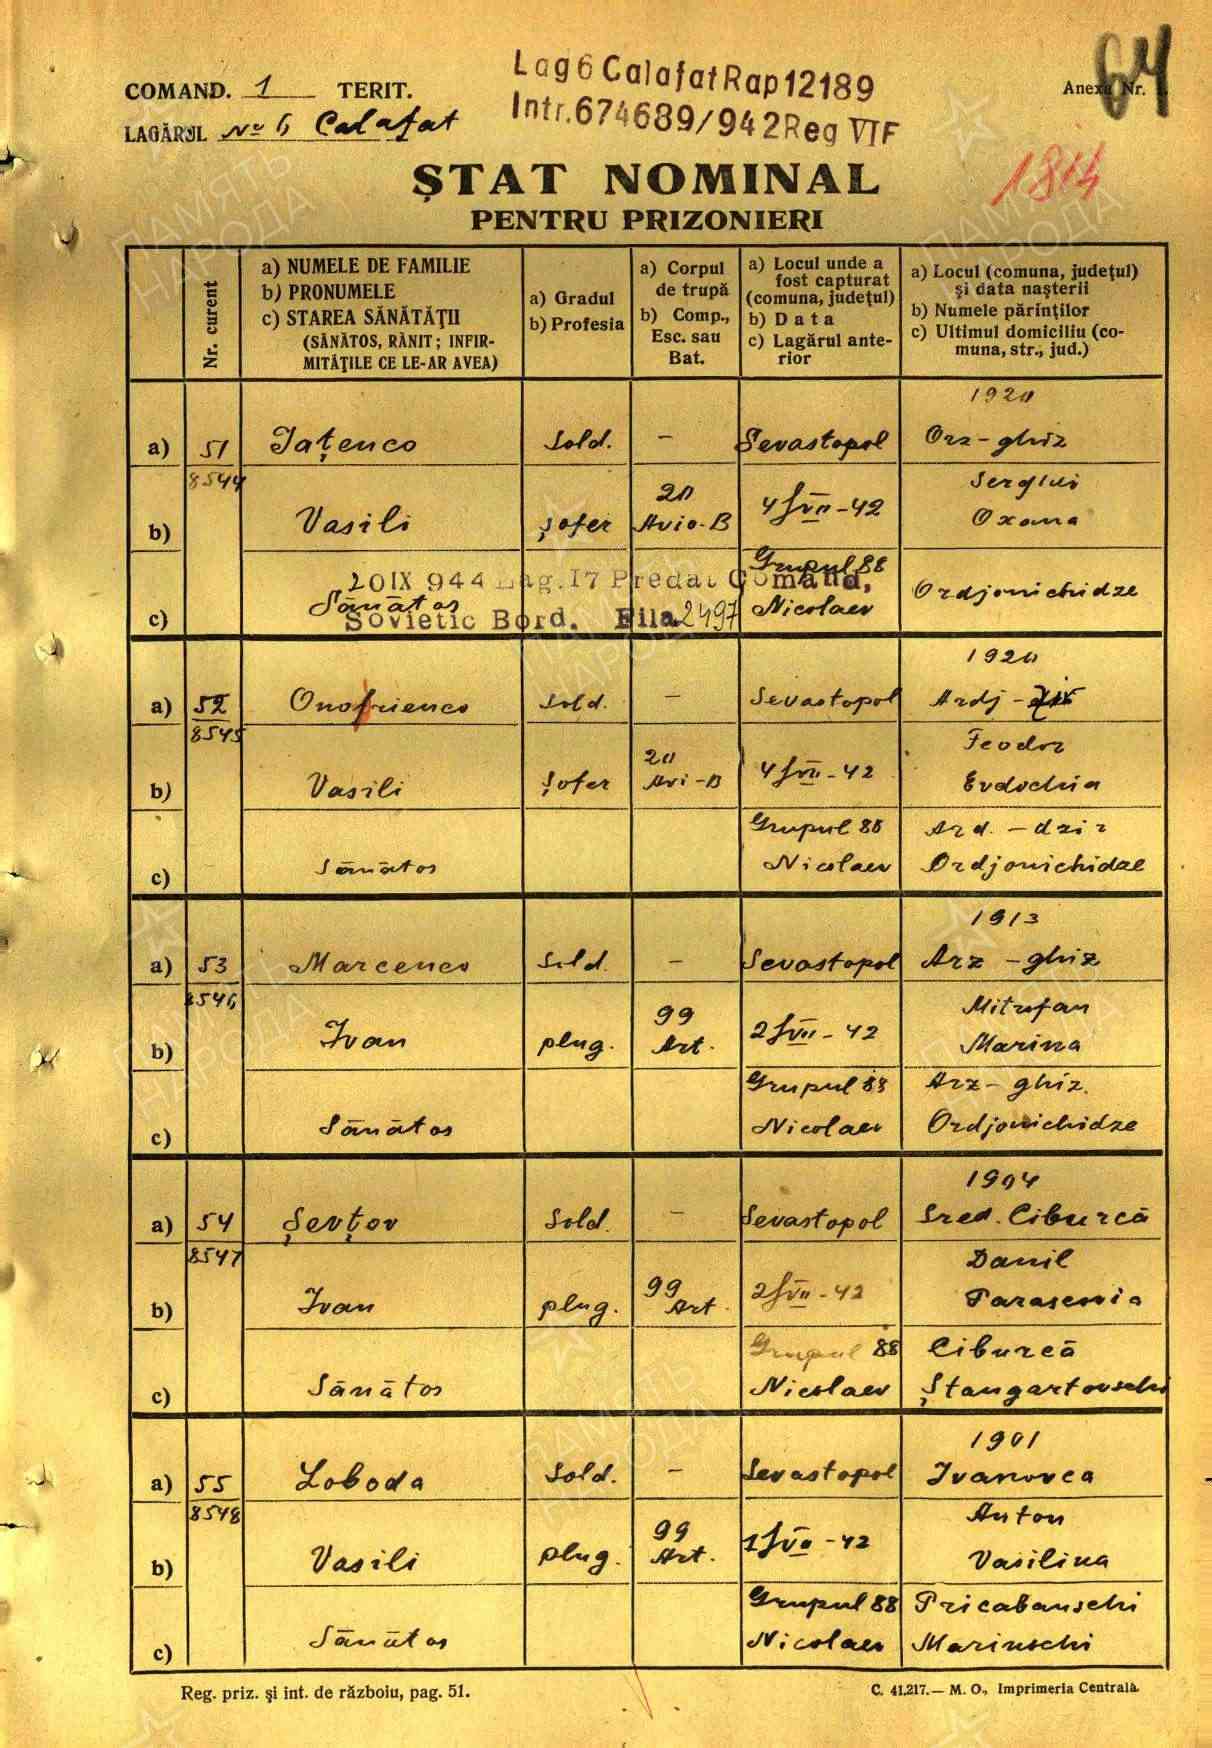 Lag 6 Calafat Rap 12189
Intr. 674689/942 Reg VIF
64
COMAND. 1 TERIT.
LAGĂRUL No 6 Calafat
Anexa Nr. 1.
1814
ȘTAT NOMINAL
PENTRU PRIZONIERI
Nr. curent
a) NUMELE DE FAMILIE
b) PRONUMELE
c) STAREA SĂNĂTĂȚII
(SĂNĂTOS, RĂNIT; INFIR-
MITĂȚILE CE LE-AR AVEA)
a) Gradul
b) Profesia
a) Corpul
de trupă
b) Comp.,
Esc. sau
Bat.
a) Locul unde a
fost capturat
(comuna, județul)
b) Data
c) Lagărul ante-
rior
a) Locul (comuna, județul)
și data nașterii
b) Numele părinților
c) Ultimul domiciliu (co-
muna, str., jud.)
1920
a) 51 Iațenco Sold. – Sevastopol Orz-ghiz
8544
Serghei
b) Vasili șofer 20 Avio-B 4/VII-42 Oxana
Grupul 88
20 IX 944 Lag. 17 Predat Comand.
Sovietic Bord. Fila 2497
c) Sănătos Nicolaev Ordjonichidze
1920
a) 52 Onofrienco Sold. – Sevastopol Ardj-
8545
Feodor
b) Vasili șofer 20 Avi-B 4/VII-42 Evdochia
Grupul 88 Ard.-dzir
c) Sănătos Nicolaev Ordjonichidze
1913
a) 53 Marcenco Sold. – Sevastopol Arz-ghiz
8546
Mitrofan
b) Ivan plug. 99 Art. 2/VII-42 Marina
Grupul 88 Arz-ghiz.
c) Sănătos Nicolaev Ordjonichidze
1904
a) 54 Șevțov Sold. – Sevastopol Sred. Ciburcă
8547
Danil
b) Ivan plug. 99 Art. 2/VII-42 Parascnia
Grupul 88 Ciburcă
c) Sănătos Nicolaev Ștangartovschi
1901
a) 55 Loboda Sold. – Sevastopol Ivanovca
8548
Anton
b) Vasili plug. 99 Art. 1/VII-42 Vasilina
Grupul 88 Pricabanschi
c) Sănătos Nicolaev Marinschi
Reg. priz. și int. de război, pag. 51.
C. 41.217.— M. O., Imprimeria Centrală.
ПАМЯТЬ
НАРОДА